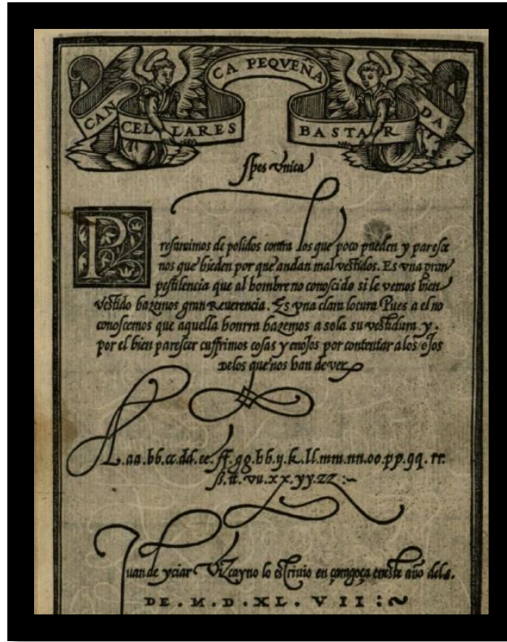 CANCELLARESCA PEQUEÑA BASTARDA
Spes vnica
Presumimos de polidos contra los que poco pueden y paresce
nos que hieden por que andan mal vestidos. Es vna gran
pestilencia que al hombre no conoscido si le vemos bien
vestido hazemos gran Reuerencia. Es vna clara locura Pues a el no
conoscemos que aquella honrra hazemos a sola su vestidura. y.
por el bien parescer cuffrimos cosas y enojos por contentar a los ojos
delos que nos han de ver
A.aa.bb.cc.dd.ee.ff.gg.hh.ij.k.ll.mm.nn.oo.pp.qq.rr.
ß.tt.vu.xx.yy.zz :~
Juan de yciar Vizcayno lo escriuio en çaragoça eneste año dela.
DE. M. D. XL. VII :~